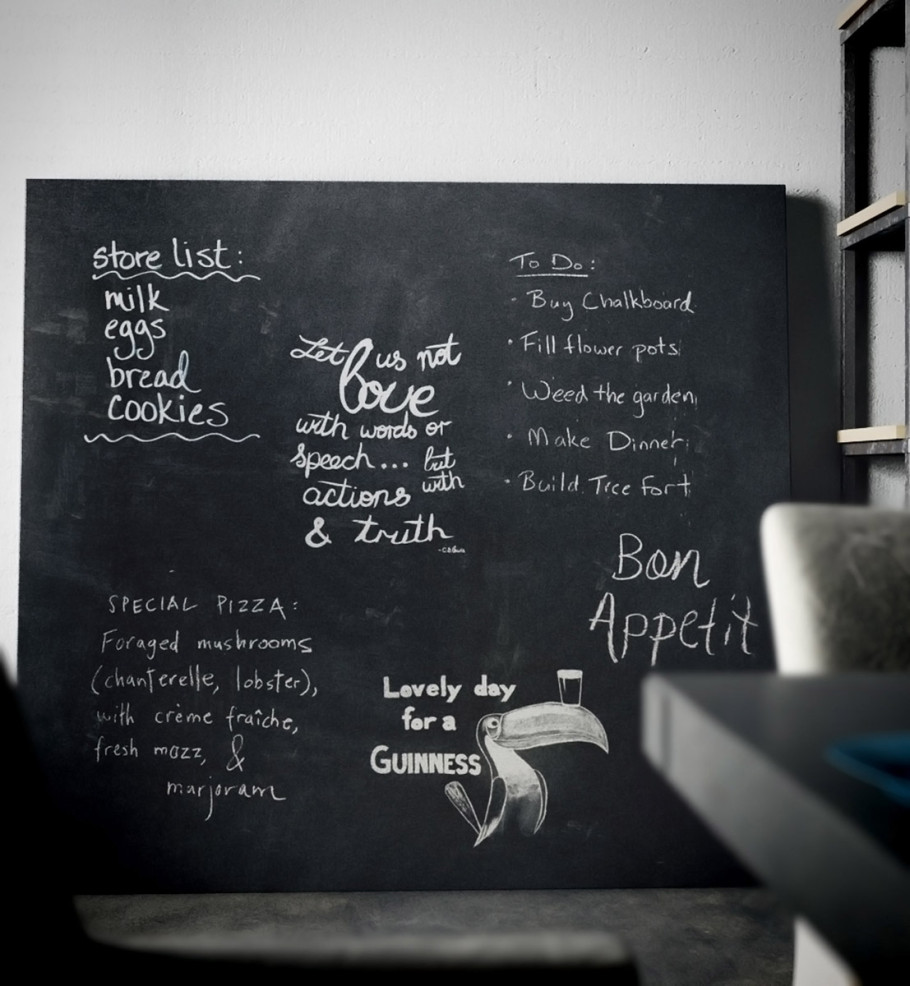 store list:
milk
eggs
bread
cookies
Let us not
love
with words or
speech... but
actions with
& truth
To Do:
· Buy Chalkboard
· Fill flower pots
· Weed the garden
· Make Dinner
· Build Tree Fort
Bon
Appetit
SPECIAL PIZZA:
Foraged mushrooms
(chanterelle, lobster),
with crème fraîche,
fresh mozz, &
marjoram
Lovely day
for a
GUINNESS